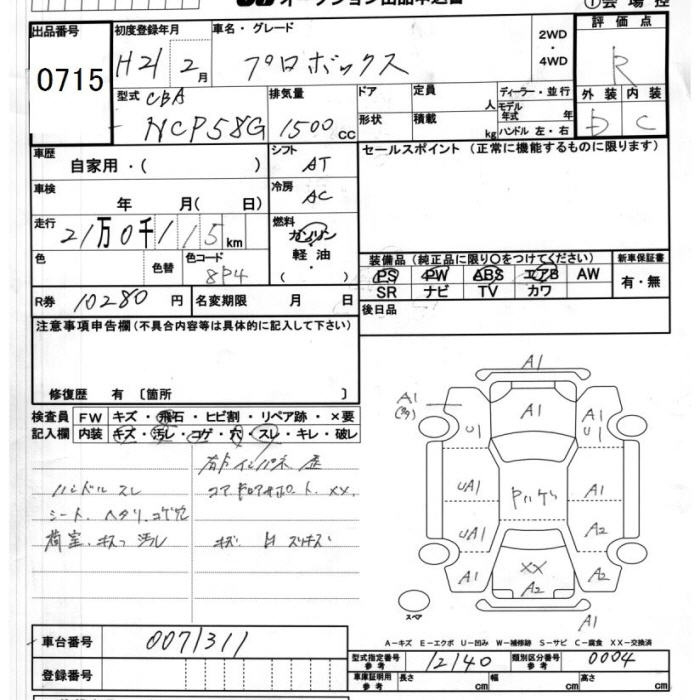 オークション出品申込書
①会場控
出品番号 0715
初度登録年月 H21 2月
車名・グレード プロボックス
2WD・4WD
評価点 R
外装 D 内装 C
型式 CBA-NCP58G
排気量 1500cc
ドア 形状
定員 人 積載 kg
ディーラー・並行
モデル年式 年式
ハンドル 左・右
車歴 自家用・( )
シフト AT
セールスポイント(正常に機能するものに限ります)
車検 年 月( 日)
冷房 AC
走行 21万0千115km
燃料 ガソリン・軽油・( )
色 色替 色コード 8P4
装備品(純正品に限り○をつけてください) 新車保証書
PS PW ABS エアB AW 有・無
SR ナビ TV カワ
R券 10280円 名変期限 月 日
後日品
注意事項申告欄(不具合内容等は具体的に記入して下さい)
修復歴 有〔箇所 〕
検査員記入欄 FW キズ・飛石・ヒビ割・リペア跡・×要
内装 キズ・汚レ・コゲ・穴・スレ・キレ・破レ
ハンドル スレ
シート、ヘタリ、コゲ穴
荷室、キズ、汚レ
コアサポート、XX.
A1
A1
A1
A1
U1
U1
UA1
A1
UA1
A2
A1
XX
A2
A2
A1
スペア
A-キズ E-エクボ U-凹み W-補修跡 S-サビ C-腐食 XX-交換済
車台番号 0071311
登録番号
型式指定番号 参考 12140 類別区分番号 参考 0004
車庫証明用 参考 長さ cm 幅 cm 高さ cm